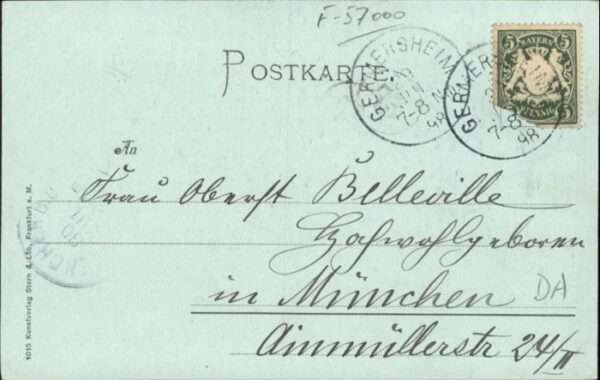 F-57000
BAYERN
5 5
PFENNIG
POSTKARTE.
GERMERSHEIM
JUN
7-8 N
98
GERMERSHEIM
7-8
98
An
Frau Oberst Belleville
Hochwohlgeboren
in München
DA
Ainmüllerstr 24/II
1015 Kunstverlag Stern & Frankfurt a. M.